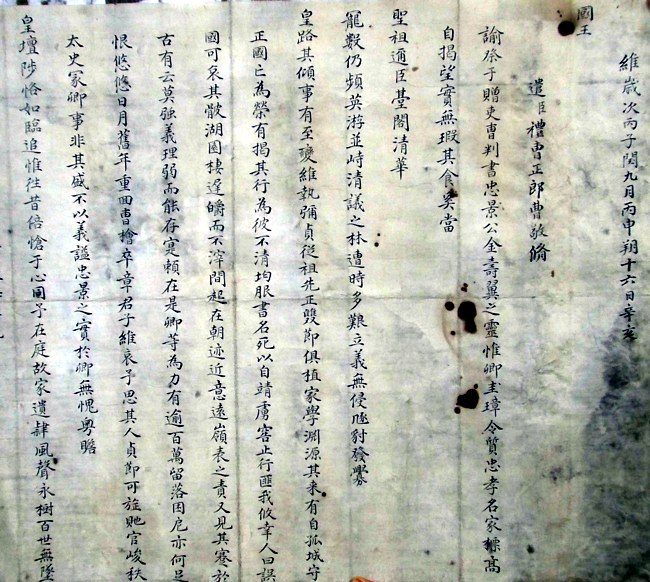 維歲次丙子閏九月丙申朔十六日辛亥
國王
遣臣禮曹正郎曹敬脩
諭祭于贈吏曹判書忠景公金壽翼之靈惟卿圭璋令質忠孝名家標高
自揭望實無瑕其食奚當
聖祖適臣臺閣清華
寵數仍頻英游並峙清議之林遭時多艱立義無侵豺發
皇路其傾事有至變維執彌貞從祖先正雙節俱植家學淵源其來有自孤城守
正國亡為榮有揭其行為彼不清均服書名死以自靖虜害止行匪我攸幸人曰誤
國可哀其骸湖園棲遲皭而不滓間起在朝迹近意遠嶺表之責又見其蹇於
古有云莫強義理弱而能存寔賴在是卿等為力有逾百萬留落因戹亦何足
恨悠悠日月舊年重回曹檜卒章君子維哀予思其人貞節可旌貤官峻秩
太史冢卿事非其盛不以義謚忠景之實於卿無愧粵瞻
皇壇陟恪如臨追惟徃昔倍愴于心圓予在庭故家遺肄風聲永樹百世無墜